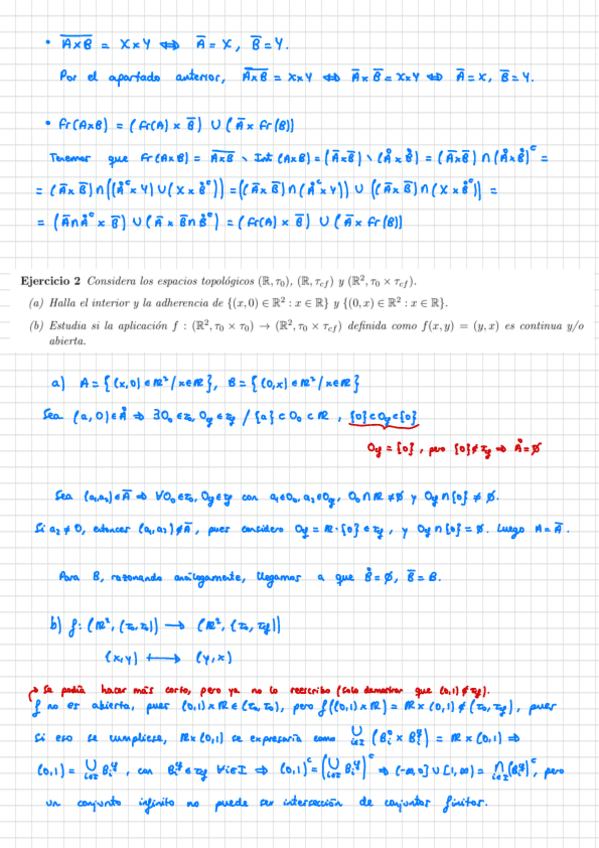 • \overline{A×B} = X×Y ⇔ \overline{A} = X, \overline{B} = Y.
Por el apartado anterior, \overline{A×B} = X×Y ⇔ \overline{A}×\overline{B} = X×Y ⇔ \overline{A} = X, \overline{B} = Y.
• Fr(A×B) = (Fr(A) × \overline{B}) ∪ (\overline{A} × Fr(B))
Tenemos que Fr(A×B) = \overline{A×B} \ Int (A×B) = (\overline{A}×\overline{B}) \ (Å × B̊) = (\overline{A}×\overline{B}) ∩ (Å×B̊)^c =
= (\overline{A}×\overline{B}) ∩ ((Å^c × Y) ∪ (X × B̊^c)) = ((\overline{A}×\overline{B}) ∩ (Å^c × Y)) ∪ ((\overline{A}×\overline{B}) ∩ (X × B̊^c)) =
= (\overline{A} ∩ Å^c × \overline{B}) ∪ (\overline{A} × \overline{B} ∩ B̊^c) = (Fr(A) × \overline{B}) ∪ (\overline{A} × Fr(B))
Ejercicio 2 Considera los espacios topológicos (ℝ, τ₀), (ℝ, τ_{cf}) y (ℝ², τ₀ × τ_{cf}).
(a) Halla el interior y la adherencia de {(x, 0) ∈ ℝ² : x ∈ ℝ} y {(0, x) ∈ ℝ² : x ∈ ℝ}.
(b) Estudia si la aplicación f : (ℝ², τ₀ × τ₀) → (ℝ², τ₀ × τ_{cf}) definida como f(x, y) = (y, x) es continua y/o
abierta.
a) A = {(x,0) ∈ ℝ² / x ∈ ℝ}, B = {(0,x) ∈ ℝ² / x ∈ ℝ}
Sea (a,0) ∈ Å ⇒ ∃O₀ ∈ τ₀, O_{cf} ∈ τ_{cf} / {a} ⊂ O₀ ⊂ ℝ, {0} ⊂ O_{cf} ⊂ {0}
O_{cf} = {0}, pero {0} ∉ τ_{cf} ⇒ Å = ∅
Sea (a₁,a₂) ∈ \overline{A} ⇒ ∀O₀ ∈ τ₀, O_{cf} ∈ τ_{cf} con a₁ ∈ O₀, a₂ ∈ O_{cf}, O₀ ∩ ℝ ≠ ∅ y O_{cf} ∩ {0} ≠ ∅.
Si a₂ ≠ 0, entonces (a₁,a₂) ∉ \overline{A}, pues considero O_{cf} = ℝ - {0} ∈ τ_{cf}, y O_{cf} ∩ {0} = ∅. Luego A = \overline{A}.
Para B, razonando análogamente, llegamos a que B̊ = ∅, \overline{B} = B.
b) f: (ℝ², (τ₀,τ₀)) → (ℝ², (τ₀, τ_{cf}))
(x,y) ⟼ (y,x)
Se podía hacer más corto, pero ya no lo reescribo (solo demostrar que (0,1) ∉ τ_{cf}).
f no es abierta, pues (0,1) × ℝ ∈ (τ₀,τ₀), pero f((0,1) × ℝ) = ℝ × (0,1) ∉ (τ₀, τ_{cf}), pues
si eso se cumpliese, ℝ × (0,1) se expresaría como ⋃_{i∈I} (B_i^0 × B_i^{cf}) = ℝ × (0,1) ⇒
(0,1) = ⋃_{i∈I} B_i^{cf}, con B_i^{cf} ∈ τ_{cf} ∀i∈I ⇒ (0,1)^c = (⋃_{i∈I} B_i^{cf})^c ⇒ (-∞,0] ∪ [1,∞) = ⋂_{i∈I} (B_i^{cf})^c, pero
un conjunto infinito no puede ser intersección de conjuntos finitos.